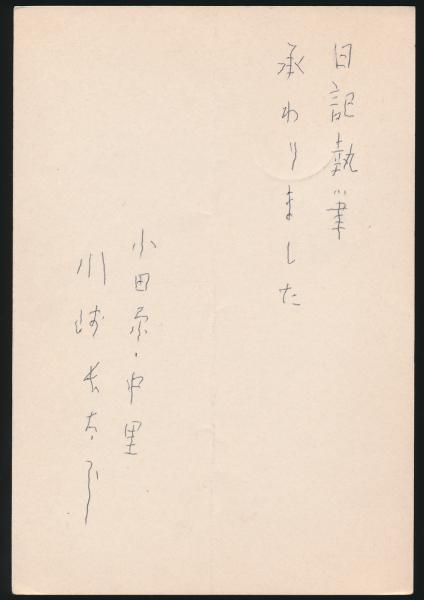 日記執筆
承わりました
小田原・中里
川崎長太郎